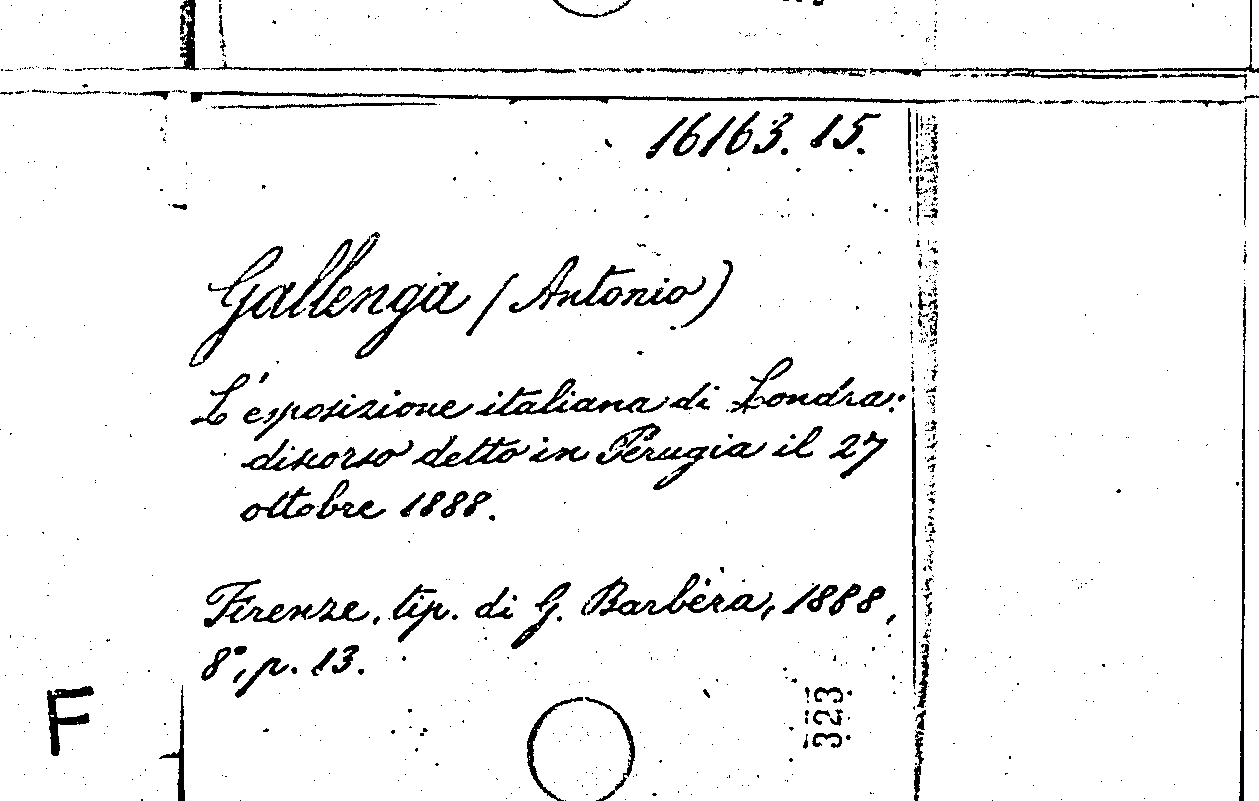 16163. 15.
Gallenga (Antonio)
L'esposizione italiana di Londra:
discorso detto in Perugia il 27
ottobre 1888.
Firenze, tip. di G. Barbèra, 1888,
8°, p. 13.
F
323